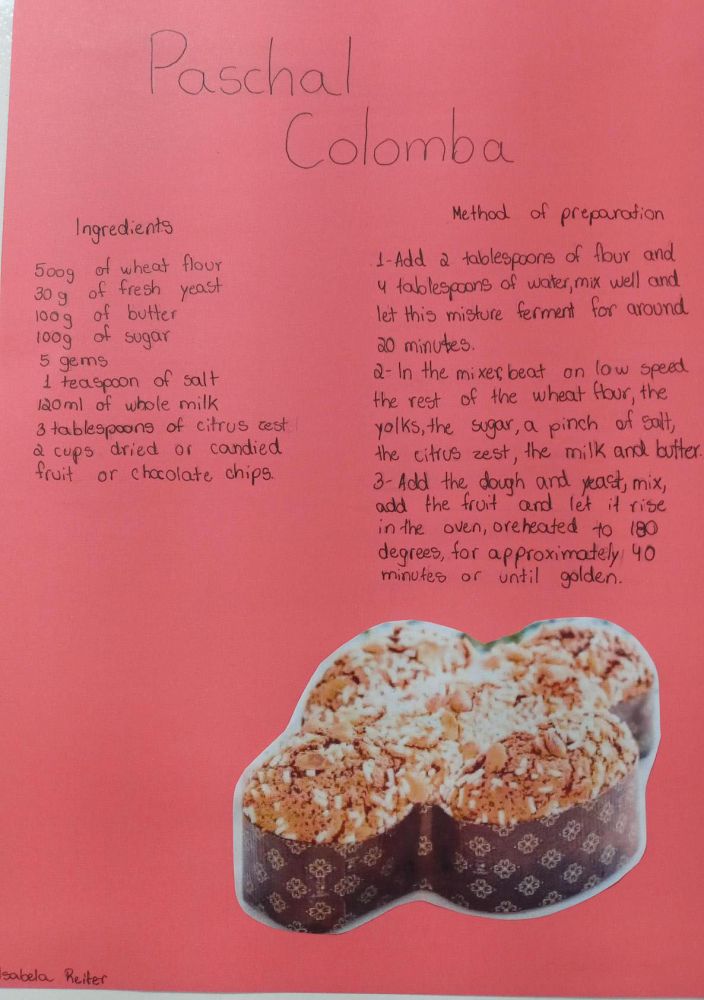 Paschal
Colomba
Ingredients
500g of wheat flour
30 g of fresh yeast
100g of butter
100g of sugar
5 gems
1 teaspoon of salt
120ml of whole milk
3 tablespoons of citrus zest
2 cups dried or candied
fruit or chocolate chips.
Method of preparation
1-Add 2 tablespoons of flour and
4 tablespoons of water, mix well and
let this misture ferment for around
20 minutes.
2- In the mixer, beat on low speed
the rest of the wheat flour, the
yolks, the sugar, a pinch of salt,
the citrus zest, the milk and butter.
3- Add the dough and yeast, mix,
add the fruit and let it rise
in the oven, oreheated to 180
degrees, for approximately 40
minutes or until golden.
Isabela Reiter